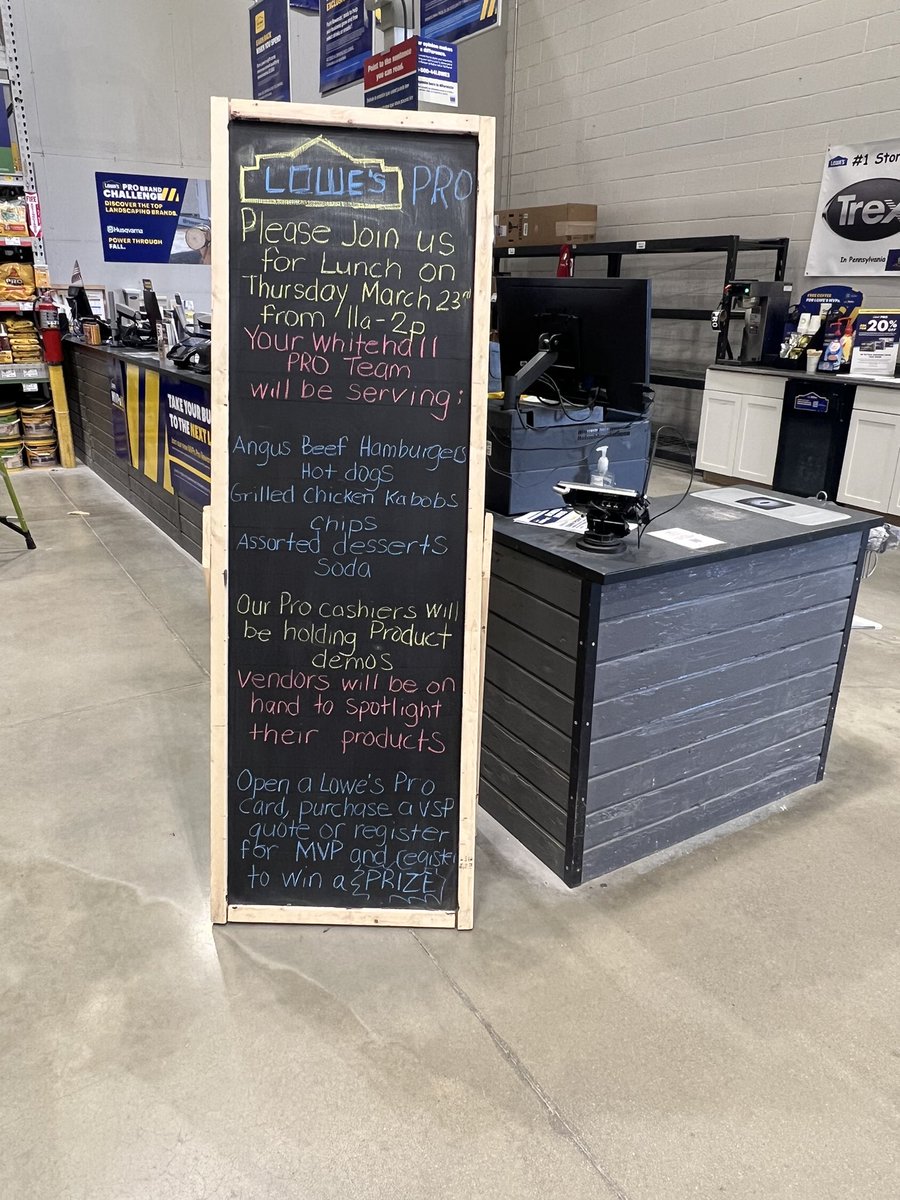 Point to the sentence
you can read.
LOWE'S PRO
Please Join us
for Lunch on
Thursday March 23rd
from 11a-2p
Your Whitehall
PRO Team
will be serving:
Angus Beef Hamburgers
Hot dogs
Grilled Chicken Kabobs
chips
Assorted desserts
soda
Our Pro cashiers will
be holding Product
demos
Vendors will be on
hand to spotlight
their products
Open a Lowe's Pro
Card, purchase a VSP
quote or register
for MVP and register
to win a {PRIZE}
LOWE'S PRO BRAND
CHALLENGE
DISCOVER THE TOP
LANDSCAPING BRANDS.
Husqvarna
POWER THROUGH
FALL.
TAKE YOUR
TO THE NEXT
LOWE'S #1
Trex
In Pennsylvania
20%